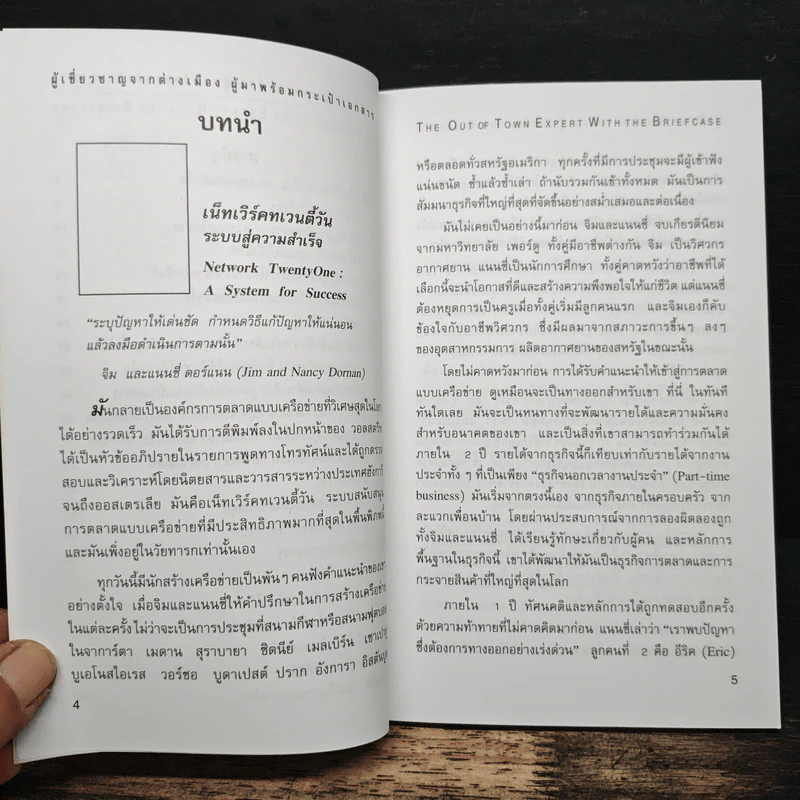 ผู้เชี่ยวชาญจากต่างเมือง ผู้มาพร้อมกระเป๋าเอกสาร
บทนำ
เน็ทเวิร์คทเวนตี้วัน
ระบบสู่ความสำเร็จ
Network TwentyOne :
A System for Success
“ระบุปัญหาให้เด่นชัด กำหนดวิธีแก้ปัญหาให้แน่นอน
แล้วลงมือดำเนินการตามนั้น”
จิม และแนนซี่ ดอร์แนน (Jim and Nancy Dornan)
มันกลายเป็นองค์กรการตลาดแบบเครือข่ายที่วิเศษสุดในโลก
ได้อย่างรวดเร็ว มันได้รับการตีพิมพ์ลงในปกหน้าของ วอลสตรีท
ได้เป็นหัวข้ออภิปรายในรายการพูดทางโทรทัศน์และได้ถูกตรวจ
สอบและวิเคราะห์โดยนิตยสารและวารสารระหว่างประเทศฮังการี
จนถึงออสเตรเลีย มันคือเน็ทเวิร์คทเวนตี้วัน ระบบสนับสนุน
การตลาดแบบเครือข่ายที่มีประสิทธิภาพมากที่สุดในพื้นพิภพนี้
และมันเพิ่งอยู่ในวัยทารกเท่านั้นเอง
ทุกวันนี้มีนักสร้างเครือข่ายเป็นพันๆ คนฟังคำแนะนำของเขา
อย่างตั้งใจ เมื่อจิมและแนนซี่ให้คำปรึกษาในการสร้างเครือข่าย
ในแต่ละครั้ง ไม่ว่าจะเป็นการประชุมที่สนามกีฬาหรือสนามฟุตบอล
ในจาการ์ตา เมดาน สุราบายา ซิดนีย์ เมลเบิร์น เซาเปาโล
บูเอโนสไอเรส วอร์ซอ บูดาเปสต์ ปราก อังการา อิสตันบูล
4
THE OUT OF TOWN EXPERT WITH THE BRIEFCASE
หรือตลอดทั่วสหรัฐอเมริกา ทุกครั้งที่มีการประชุมจะมีผู้เข้าฟัง
แน่นขนัด ซ้ำแล้วซ้ำเล่า ถ้านับรวมกันเข้าทั้งหมด มันเป็นการ
สัมมนาธุรกิจที่ใหญ่ที่สุดที่จัดขึ้นอย่างสม่ำเสมอและต่อเนื่อง
มันไม่เคยเป็นอย่างนี้มาก่อน จิมและแนนซี่ จบเกียรตินิยม
จากมหาวิทยาลัย เพอร์ดู ทั้งคู่มีอาชีพต่างกัน จิม เป็นวิศวกร
อากาศยาน แนนซี่เป็นนักการศึกษา ทั้งคู่คาดหวังว่าอาชีพที่ได้
เลือกนี้จะนำโอกาสที่ดีและสร้างความพึงพอใจให้แก่ชีวิต แต่แนนซี่
ต้องหยุดการเป็นครูเมื่อทั้งคู่เริ่มมีลูกคนแรก และจิมเองก็คับ
ข้องใจกับอาชีพวิศวกร ซึ่งมีผลมาจากสภาวะการขึ้นๆ ลงๆ
ของอุตสาหกรรมการ ผลิตอากาศยานของสหรัฐในขณะนั้น
โดยไม่คาดหวังมาก่อน การได้รับคำแนะนำให้เข้าสู่การตลาด
แบบเครือข่าย ดูเหมือนจะเป็นทางออกสำหรับเขา ที่นี่ ในทันที
ทันใดเลย มันจะเป็นหนทางที่จะพัฒนารายได้และความมั่นคง
สำหรับอนาคตของเขา และเป็นสิ่งที่เขาสามารถทำร่วมกันได้
ภายใน 2 ปี รายได้จากธุรกิจนี้ก็เทียบเท่ากับรายได้จากงาน
ประจำทั้ง ๆ ที่เป็นเพียง “ธุรกิจนอกเวลางานประจำ” (Part-time
business) มันเริ่มจากตรงนี้เอง จากธุรกิจภายในครอบครัว จาก
ละแวกเพื่อนบ้าน โดยผ่านประสบการณ์จากการลองผิดลองถูก
ทั้งจิมและแนนซี่ ได้เรียนรู้ทักษะเกี่ยวกับผู้คน และหลักการ
พื้นฐานในธุรกิจนี้ เขาได้พัฒนาให้มันเป็นธุรกิจการตลาดและการ
กระจายสินค้าที่ใหญ่ที่สุดในโลก
ภายใน 1 ปี ทัศนคติและหลักการได้ถูกทดสอบอีกครั้ง
ด้วยความท้าทายที่ไม่คาดคิดมาก่อน แนนซี่เล่าว่า “เราพบปัญหา
ซึ่งต้องการทางออกอย่างเร่งด่วน” ลูกคนที่ 2 คือ อีริค (Eric)
5